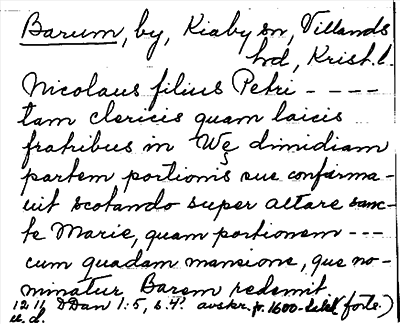 Barum, by, Kiaby sn, Villands
hd, Krist.l.
Nicolaus filius Petri - - - -
tam clericis quam laicis
fratribus in Wę dimidiam
partem portionis sue confirma-
uit scotando super altare sanc-
te Marie, quam portionem ---
cum quadam mansione, que no-
minatur Barem redemit.
12 11 DDan 1:5, s.
u. d. avskr. fr. 1600-talet